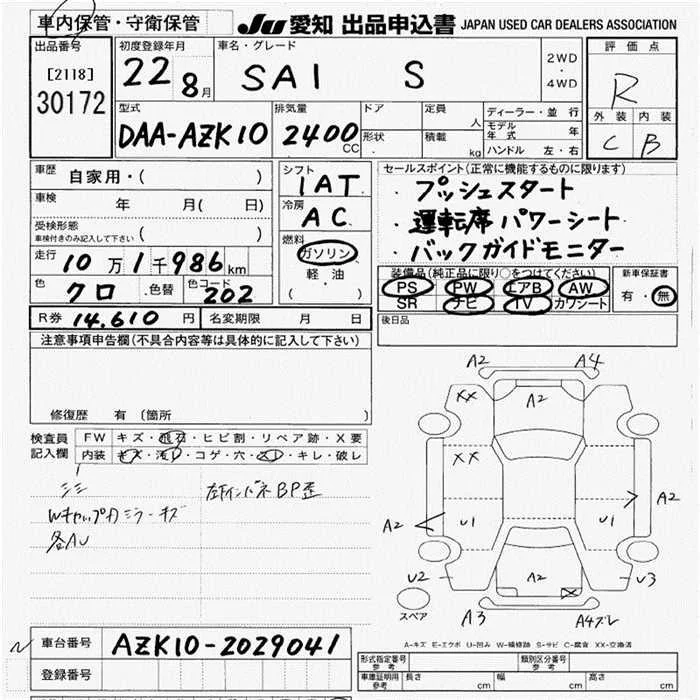 車内保管・守衛保管
JU 愛知 出品申込書 JAPAN USED CAR DEALERS ASSOCIATION
出品番号
[2118]
30172
初度登録年月
22 8月
車名・グレード
SAI S
2WD
・
4WD
評価点
R
外装 内装
C B
型式
DAA-AZK10
排気量
2400 CC
ドア
形状
定員 人
積載 kg
ディーラー・並行
モデル年式 年
ハンドル 左・右
車歴 自家用・( )
車検 年 月( 日)
受検形態
車検付きのみ記入して下さい ( )
走行 10万1千986km
色 クロ 色替 色コード 202
シフト
1AT
冷房
AC
燃料
ガソリン
・
軽油
( )
セールスポイント(正常に機能するものに限ります)
・プッシュスタート
・運転席パワーシート
・バックガイドモニター
装備品(純正品に限り○をつけてください)
PS PW エアB AW
SR ナビ TV カワシート
新車保証書
有・無
R券 14,610 円 名変期限 月 日
後日品
注意事項申告欄(不具合内容等は具体的に記入して下さい)
修復歴 有 (箇所 )
検査員記入欄
FW キズ・飛石・ヒビ割・リペア跡・X要
内装 キズ・汚レ・コゲ・穴・スレ・キレ・破レ
各AU
A2 A4
XX A2
XX
A2 U1 U1 A2
U2 A2 X U3
A3 A4ズレ
スペア
A-キズ E-エクボ U-凹み W-補修跡 S-サビ C-腐食 XX-交換済
車台番号 AZK10-2029041
登録番号
形式指定番号 参考
類別区分番号 参考
車庫証明用 参考 長さ cm 幅 cm 高さ cm